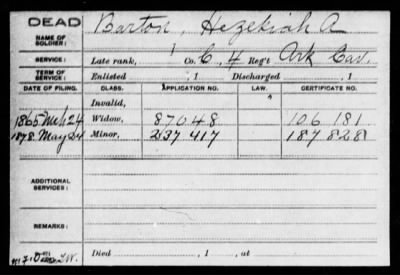 DEAD
NAME OF SOLDIER: Barton, Hezekiah A
SERVICE: Late rank, Co. C, 4 Reg't Ark Cav.
TERM OF SERVICE: Enlisted , 1 Discharged , 1
DATE OF FILING. CLASS. APPLICATION NO. LAW. CERTIFICATE NO.
Invalid,
1865 Mch 24 Widow, 87048 106 181
1878 May 24 Minor, 237 417 187 828
ADDITIONAL SERVICES:
REMARKS:
Died , 1 , at